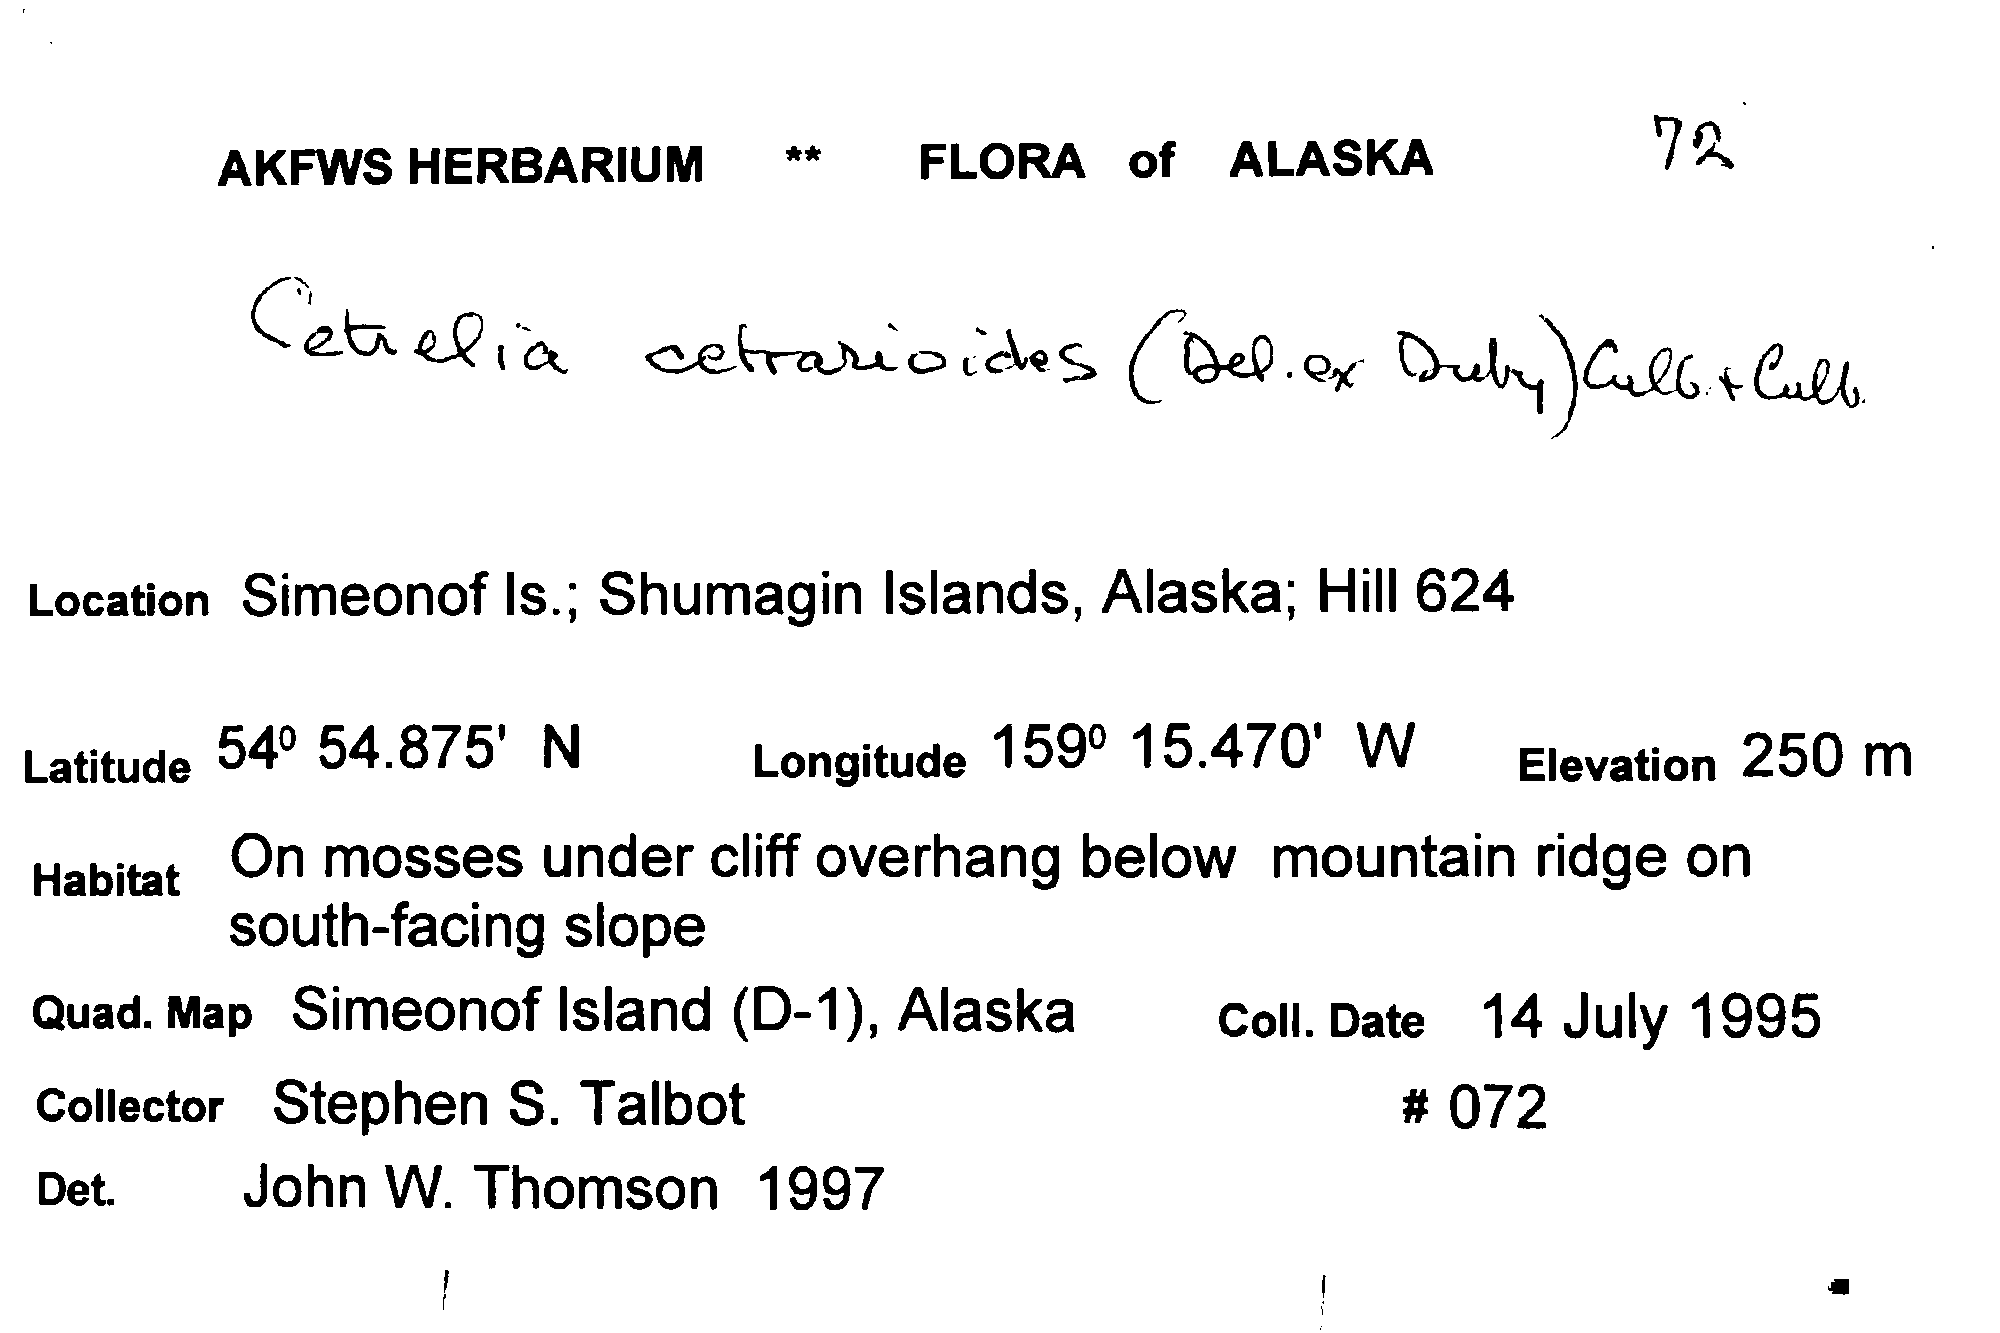 AKFWS HERBARIUM ** FLORA of ALASKA 72
Cetrelia cetrarioides (Del. ex Duby) Culb. + Culb.
Location Simeonof Is.; Shumagin Islands, Alaska; Hill 624
Latitude 54⁰ 54.875' N Longitude 159⁰ 15.470' W Elevation 250 m
Habitat On mosses under cliff overhang below mountain ridge on
south-facing slope
Quad. Map Simeonof Island (D-1), Alaska Coll. Date 14 July 1995
Collector Stephen S. Talbot # 072
Det. John W. Thomson 1997